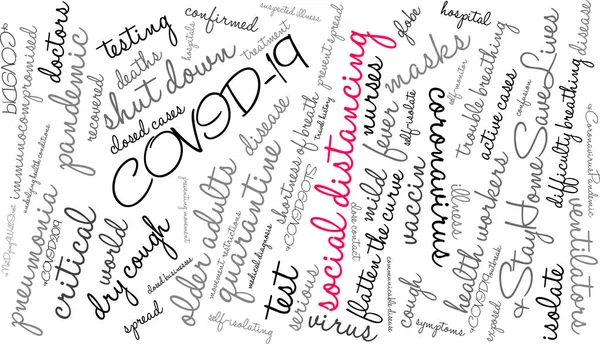 #COVIDIDIOT
immunocompromised
underlying health conditions
pneumonia
doctors
pandemic
recovered
testing
deaths
shut down
closed cases
hospitals
confirmed
treatment
suspected illness
COVID-19
critical
world
dry cough
spread
closed businesses
older adults
movement restrictions
quarantine
medical diagnosis
self-isolating
disease
shortness of breath
prevent spread
travel history
test
serious
virus
social distancing
nurses
mild
fever
flatten the curve
close contact
self-isolate
masks
globe
vaccin
coronavirus
communicable disease
cough
symptoms
hospital
self-monitor
trouble breathing
active cases
illness
health workers
exposed
outbreak
confusion
#StayHomeSaveLives
difficulty breathing
disease
#CoronavirusPandemic
ventilators
isolate